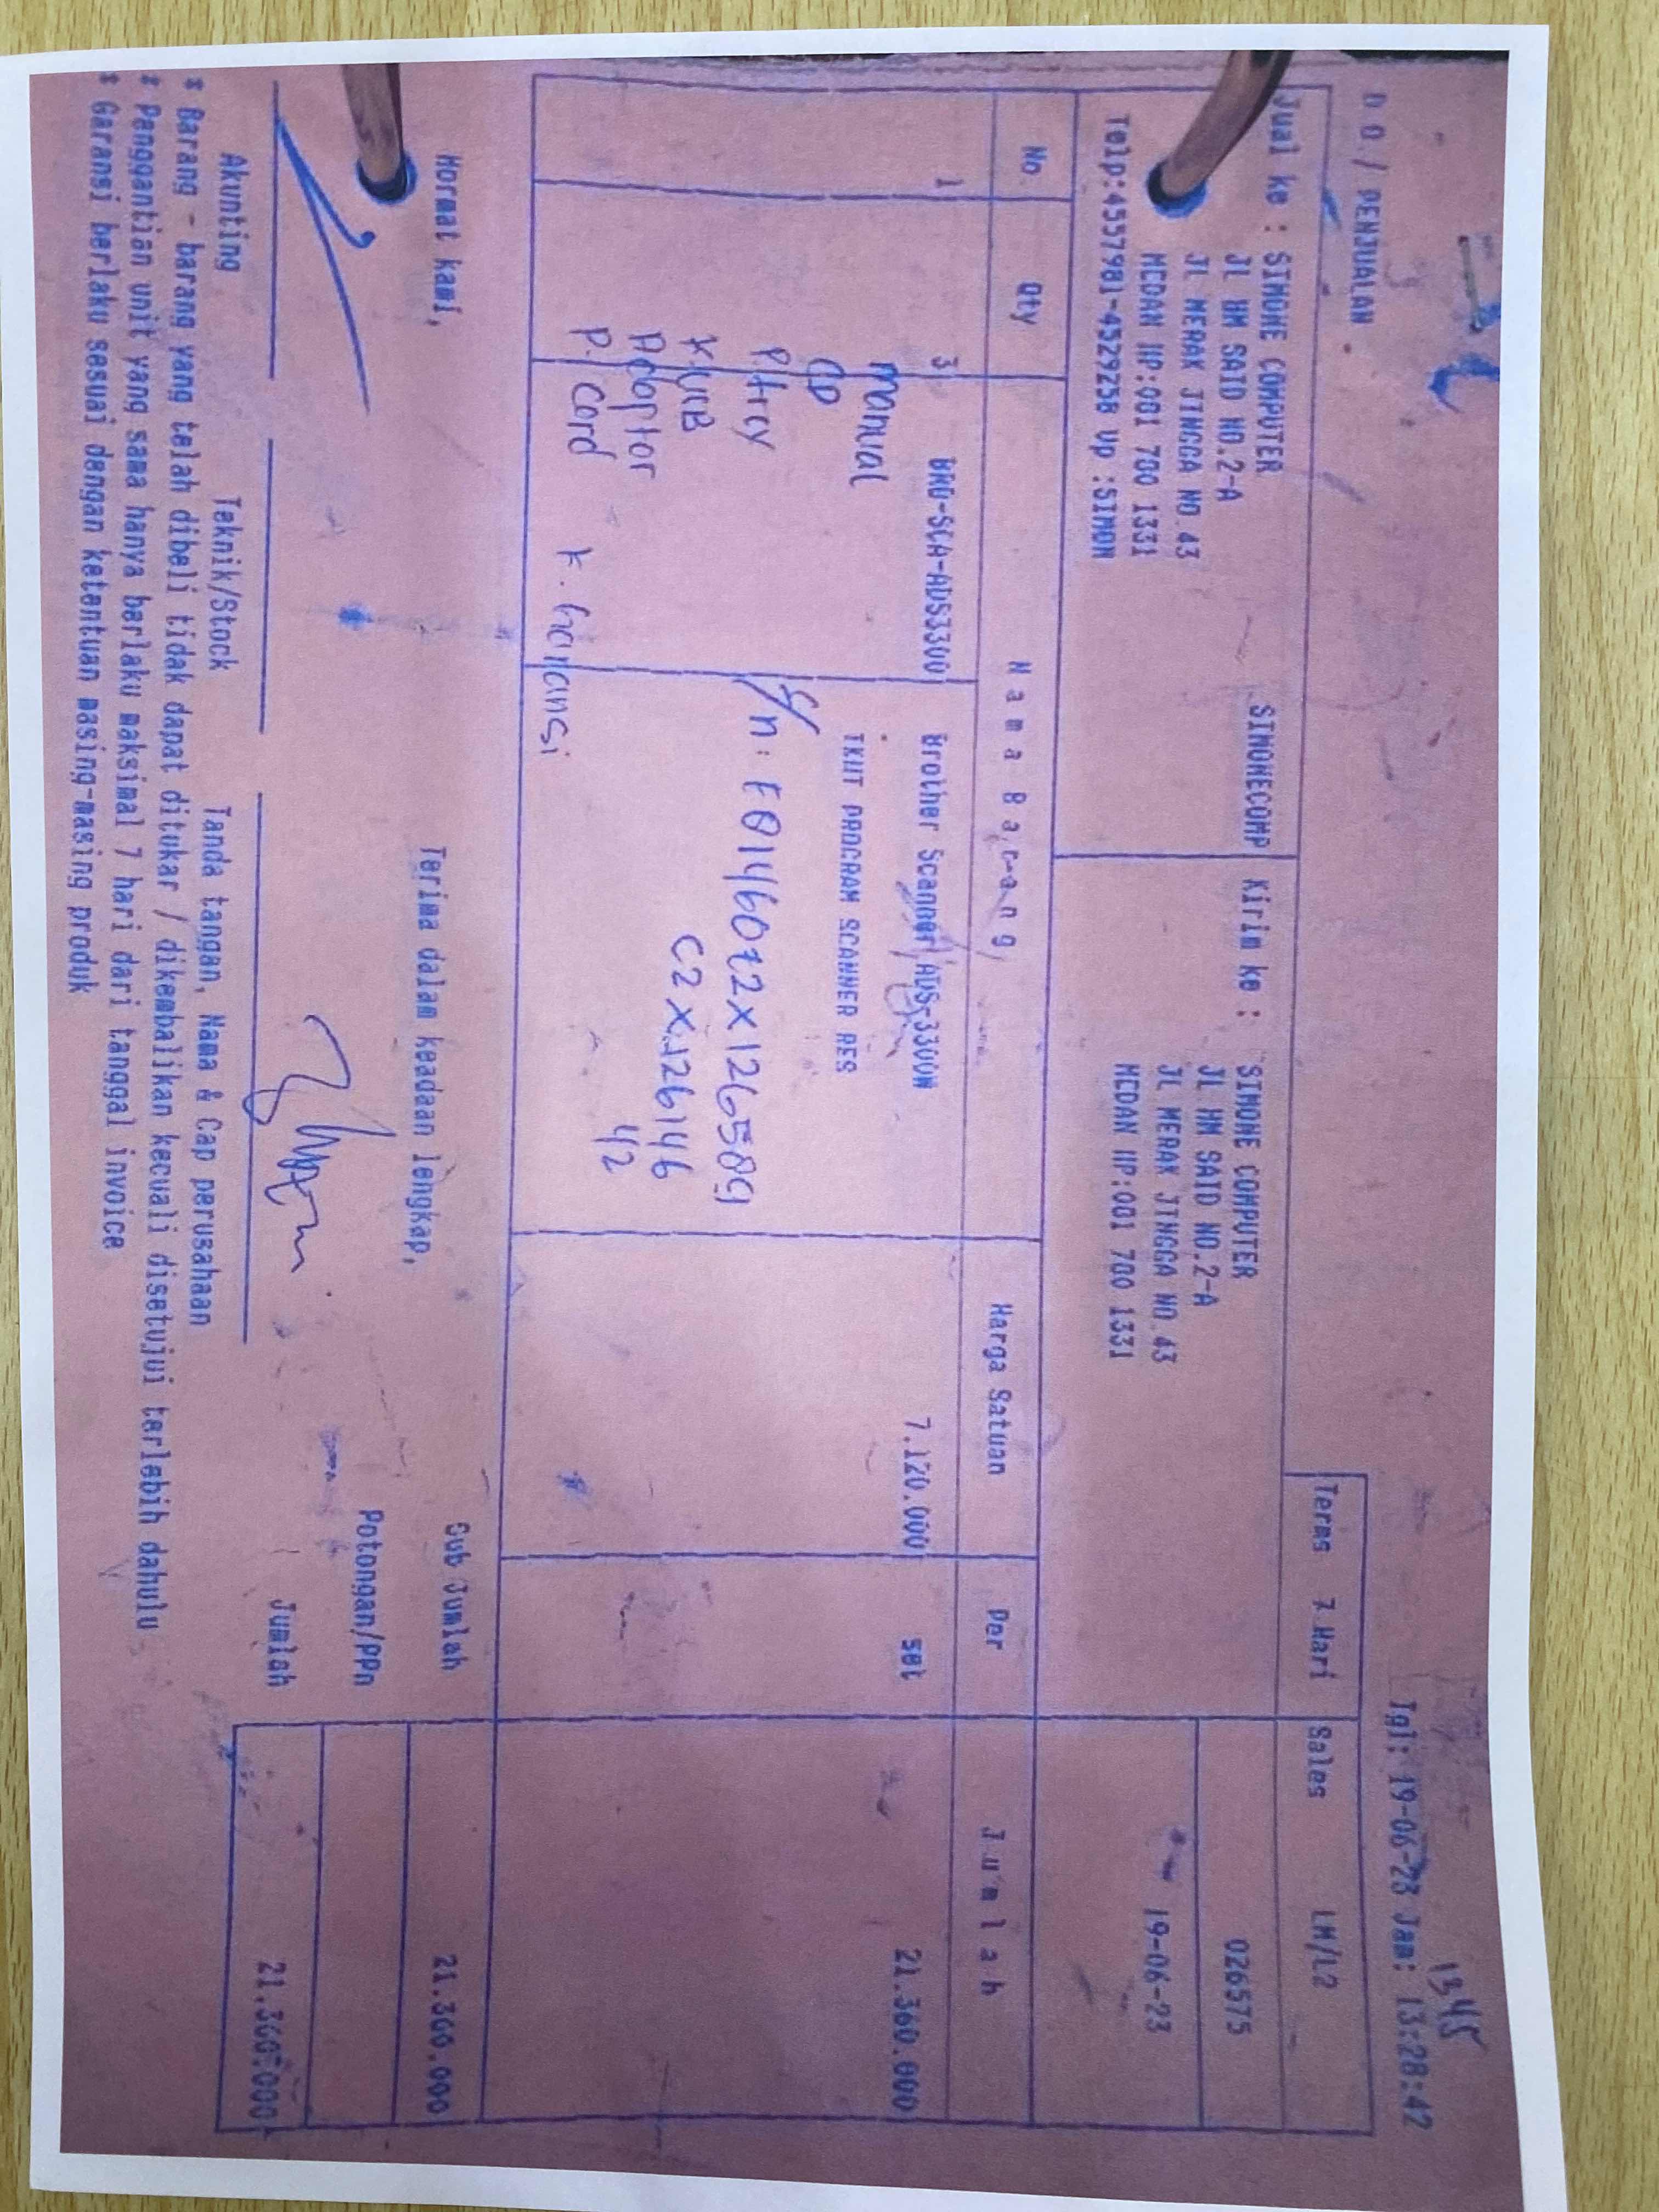 1345
D O / PENJUALAN
Tgl: 19-06-23 Jam: 13:28:42
Terms 7 Hari Sales LM/L2
Jual ke : SIMONE COMPUTER SIMONECOMP
JL HM SAID NO.2-A
JL MERAK JINGGA NO 43
MEDAN HP:081 700 1331
Telp:4557981-4529258 up :SIMON
Kirim ke : SIMONE COMPUTER
JL HM SAID NO.2-A
JL MERAK JINGGA NO 43
MEDAN HP:081 700 1331
026575
19-06-23
No Qty Nama Barang Harga Satuan Per Jumlah
1 3 BRO-SCA-ADS3300 Brother Scanner ADS-3300W 7.120.000 set 21.360.000
manual
PROGRAM SCANNER RES
CD
P.
K.
Adaptor
P. Cord
K. Garansi
S/n:
42
Hormat kami,
Terima dalam keadaan lengkap,
Sub Jumlah 21.360.000
Potongan/PPn
Jumlah 21.360.000
Akunting
Teknik/Stock
Tanda tangan, Nama & Cap perusahaan
* Barang - barang yang telah dibeli tidak dapat ditukar / dikembalikan kecuali disetujui terlebih dahulu
* Panggantian unit yang sama hanya berlaku maksimal 7 hari dari tanggal invoice
* Garansi berlaku sesuai dengan ketentuan masing-masing produk